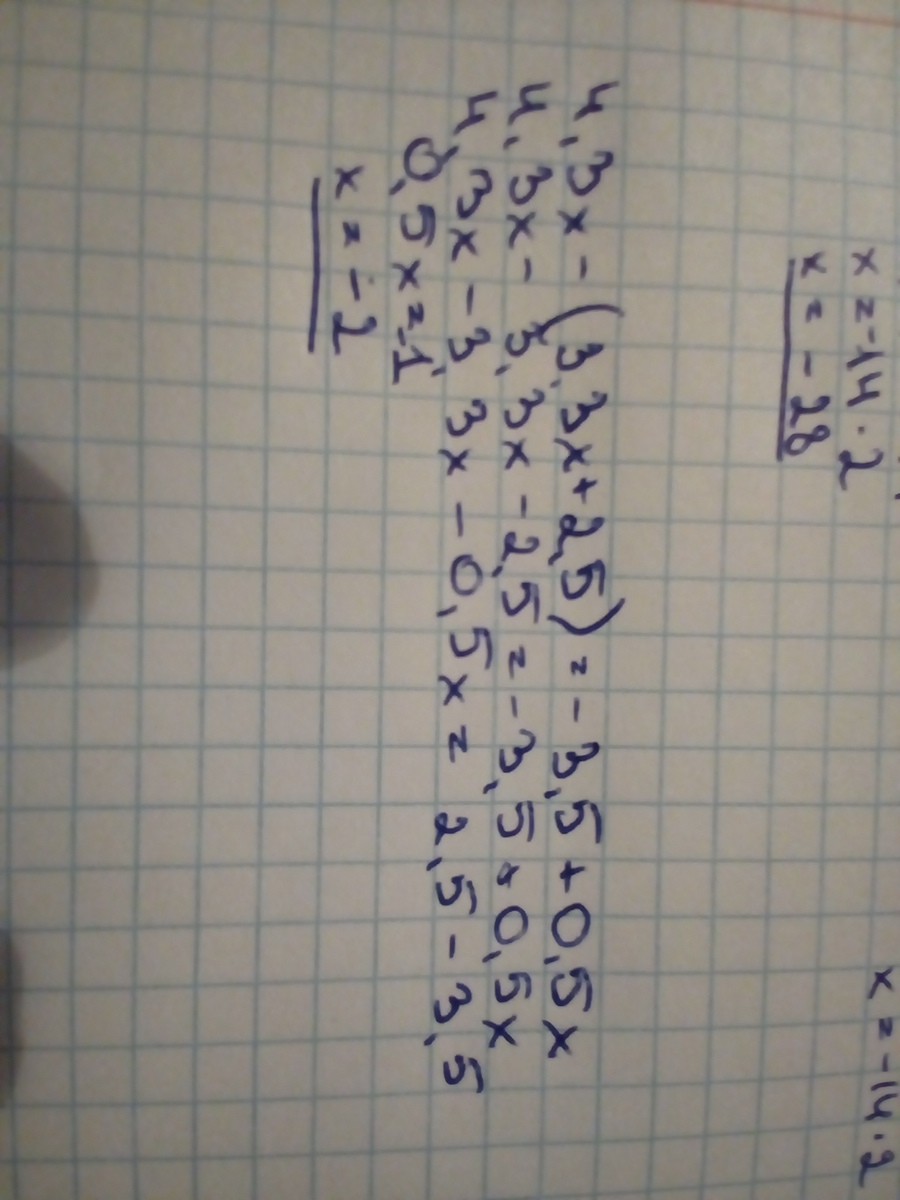 x = -14 · 2
x = -28
x = -14 · 2
4,3x - (3,3x + 2,5) = -3,5 + 0,5x
4,3x - 3,3x - 2,5 = -3,5 + 0,5x
4,3x - 3,3x - 0,5x = 2,5 - 3,5
0,5x = -1
x = -2